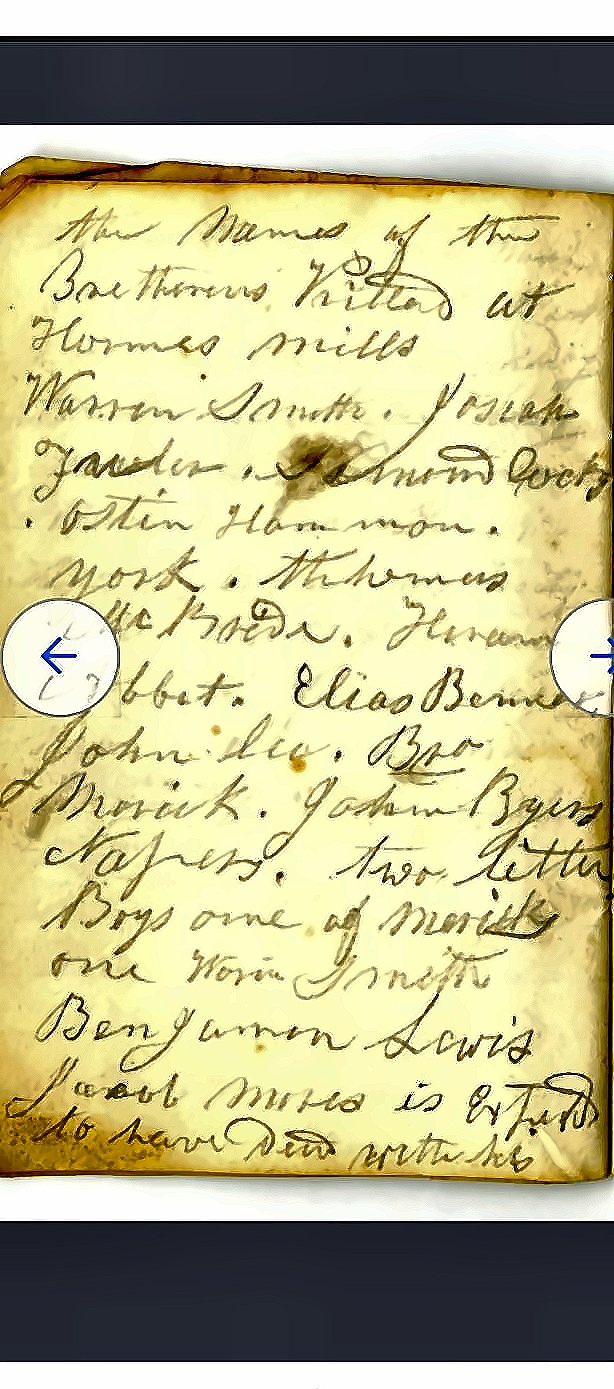 the Names of the
Bretherens Killed at
Hormes mills
Warren Smith. Josiah
Fuller. Simond Cocks
. Ostin Hammon.
york. thhomus
Mc Bride. Hiram
Abbot. Elias Benner
John Lee. Bro
Merick. John Byers
Napers. two little
Boys one of Mericks
one Smith
Benjamon Lewis
Jacob is
to have Died with his